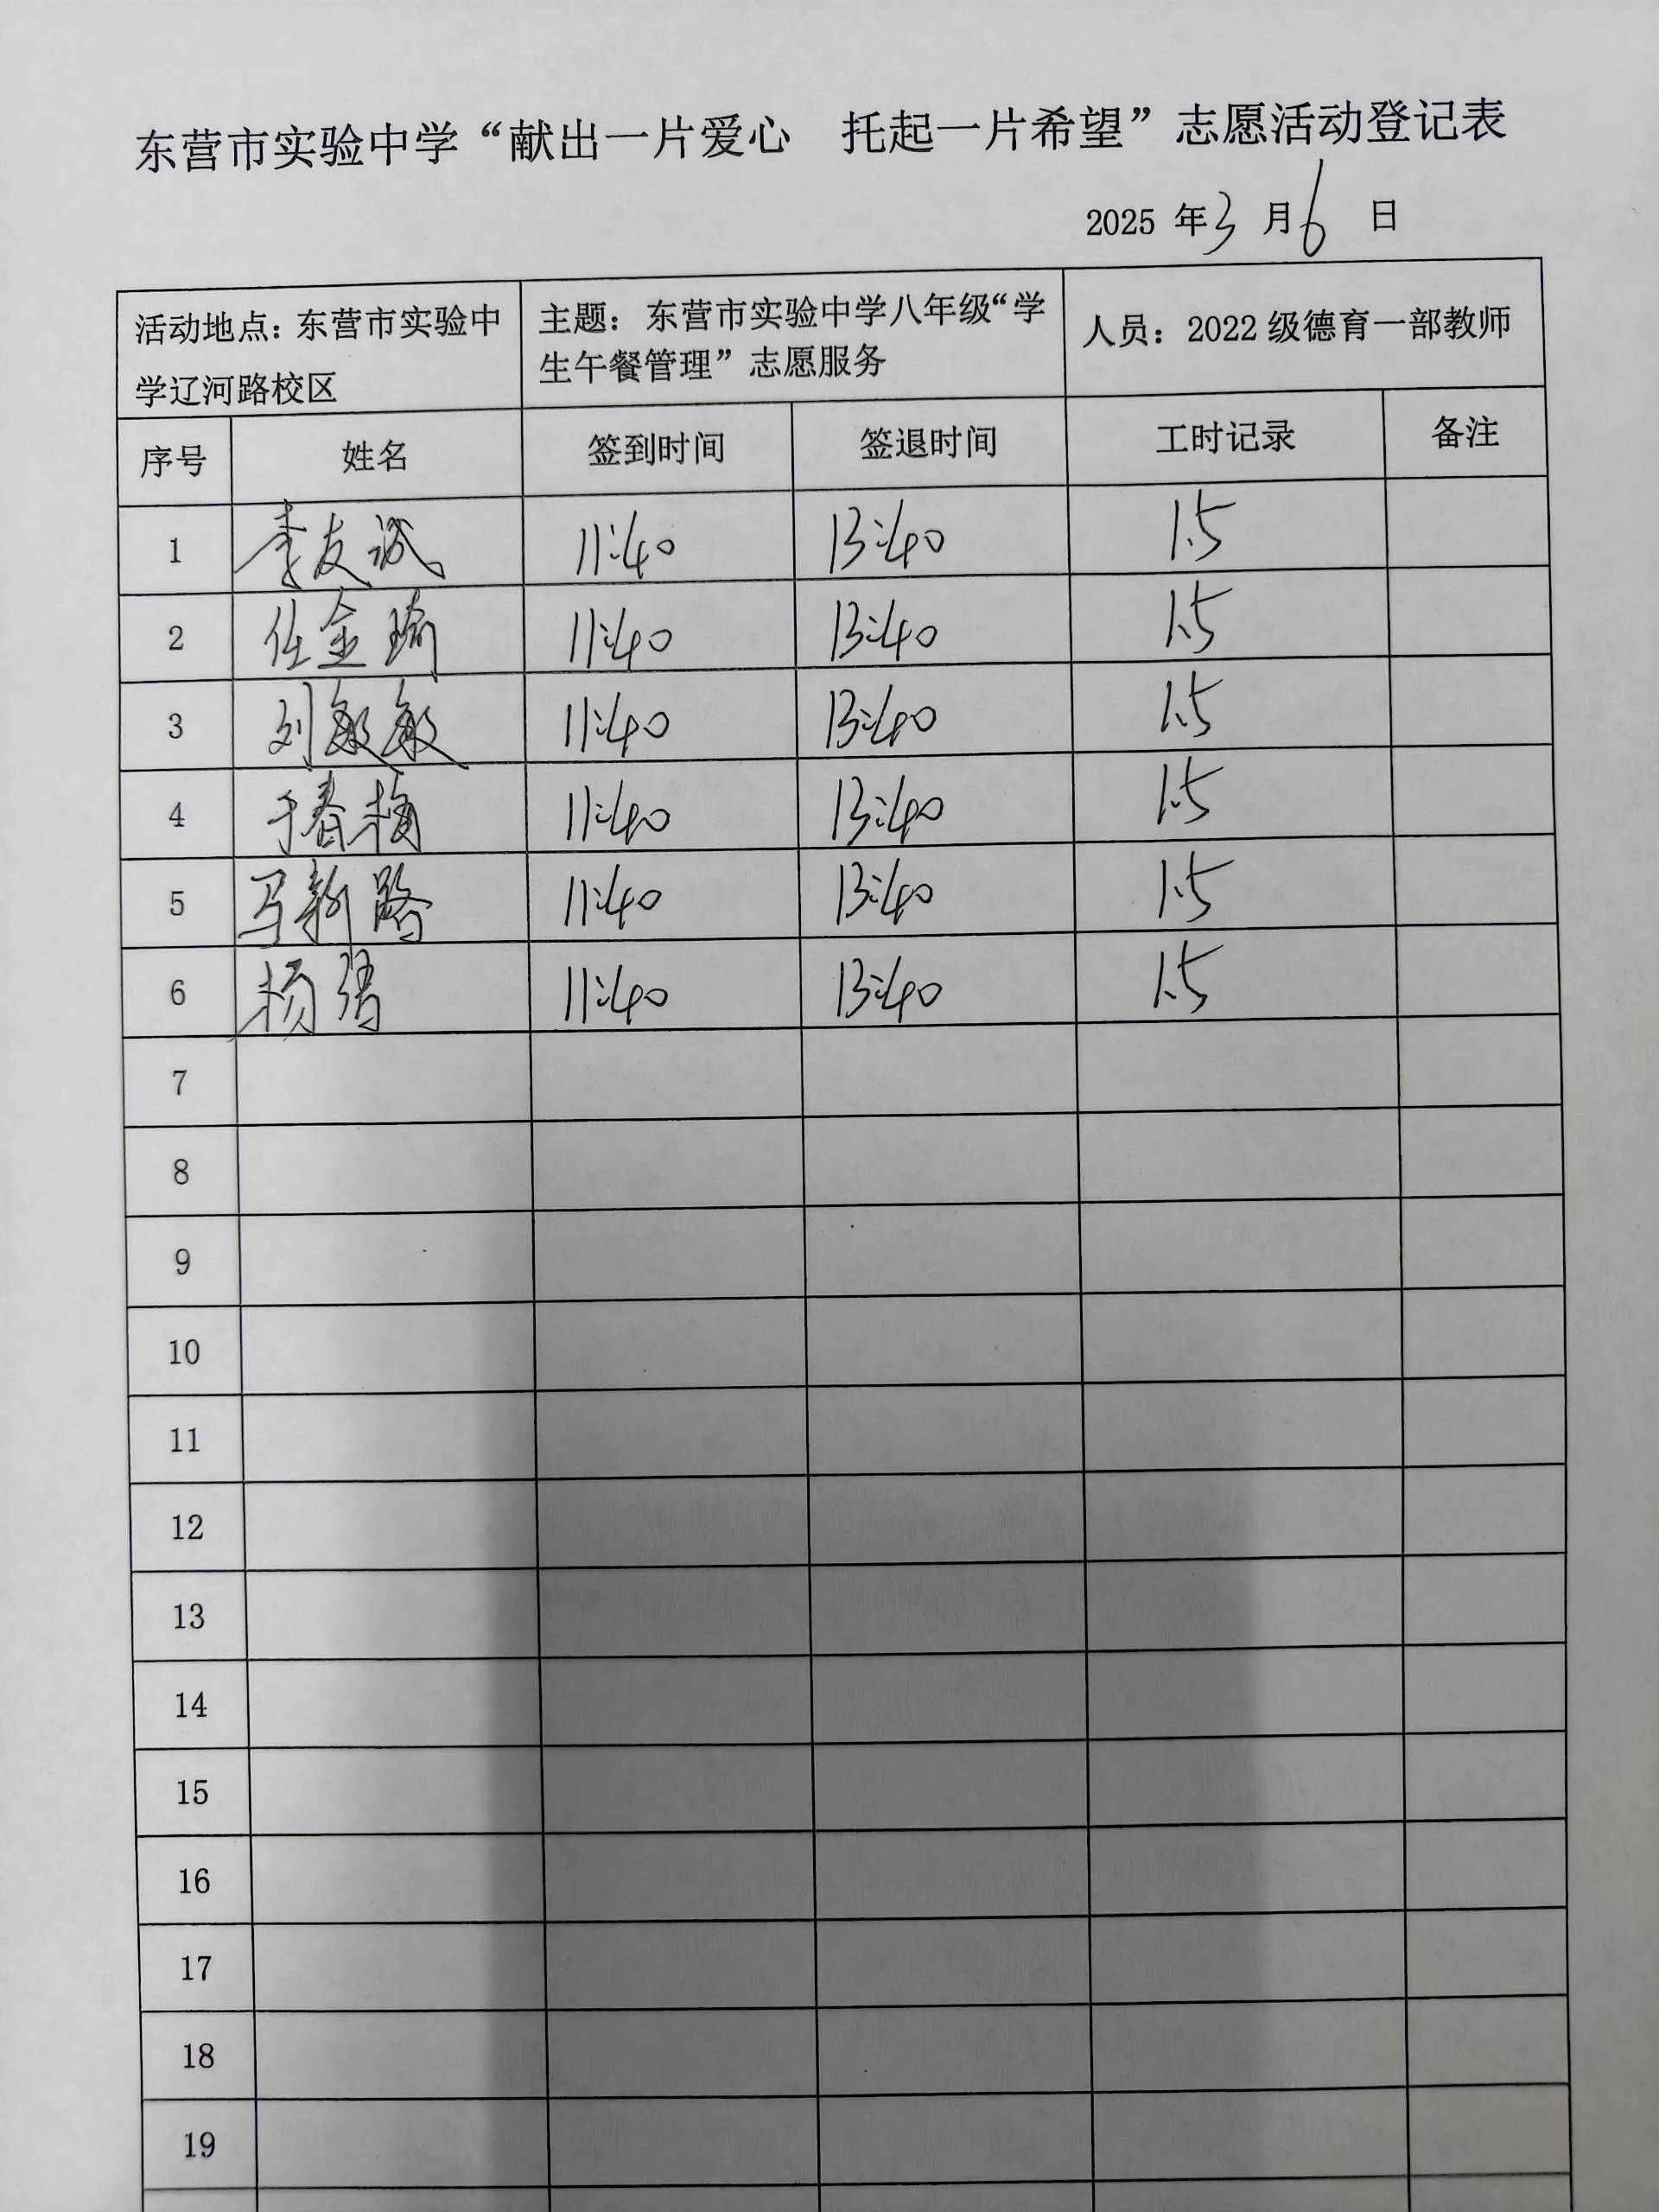 东营市实验中学“献出一片爱心　托起一片希望”志愿活动登记表
2025 年 3 月 6 日
活动地点：东营市实验中学辽河路校区 主题：东营市实验中学八年级“学生午餐管理”志愿服务 人员：2022 级德育一部教师
序号 姓名 签到时间 签退时间 工时记录 备注
1 李友诚 11:40 13:40 1.5
2 任金瑜 11:40 13:40 1.5
3 刘敏敏 11:40 13:40 1.5
4 于春梅 11:40 13:40 1.5
5 马新路 11:40 13:40 1.5
6 杨 11:40 13:40 1.5
7
8
9
10
11
12
13
14
15
16
17
18
19